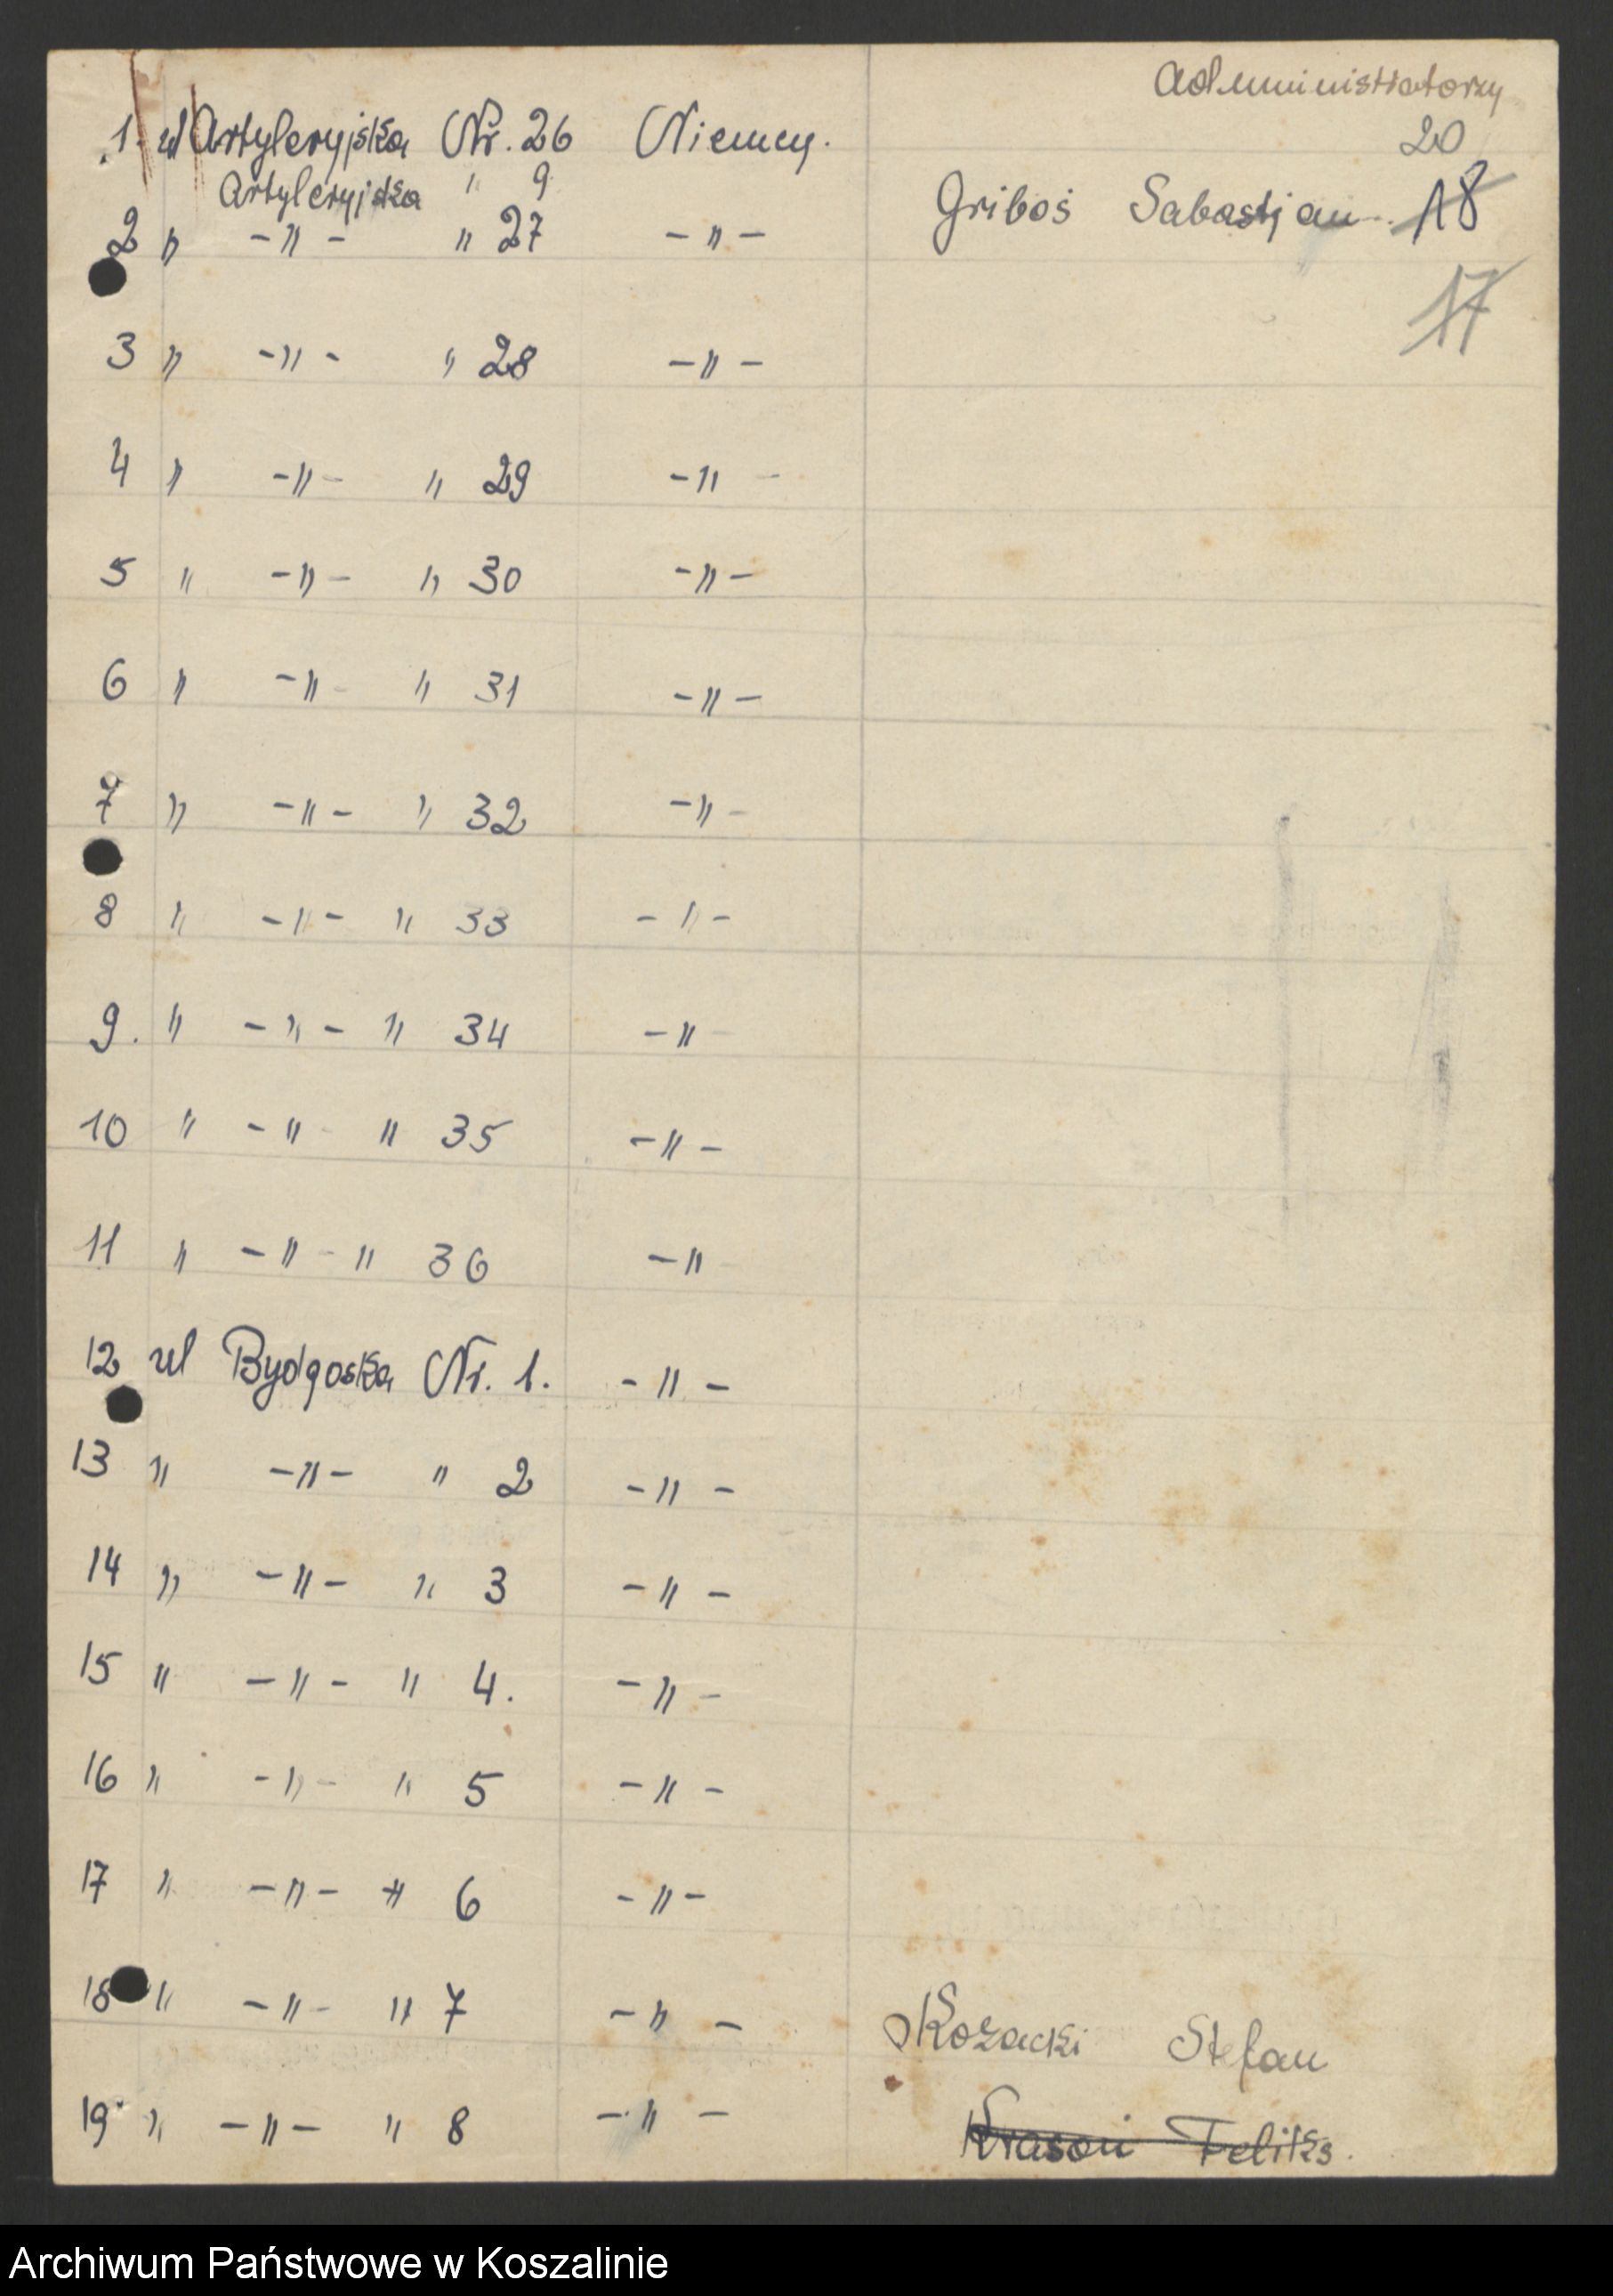 Administratorzy
20
1. ul Artyleryjska Nr. 26 Niemcy.
Artyleryjska " 9
2 " -"- " 27 -"- Griboś Sabastjan 18
17
3 " -"- " 28 -"-
4 " -"- " 29 -"-
5 " -"- " 30 -"-
6 " -"- " 31 -"-
7 " -"- " 32 -"-
8 " -"- " 33 -"-
9. " -"- " 34 -"-
10 " -"- " 35 -"-
11 " -"- " 36 -"-
12 ul Bydgoska Nr. 1. -"-
13 " -"- " 2 -"-
14 " -"- " 3 -"-
15 " -"- " 4. -"-
16 " -"- " 5 -"-
17 " -"- " 6 -"-
18 " -"- " 7 -"- Kozacki Stefan
19 " -"- " 8 -"- Krasoń Feliks.
Archiwum Państwowe w Koszalinie